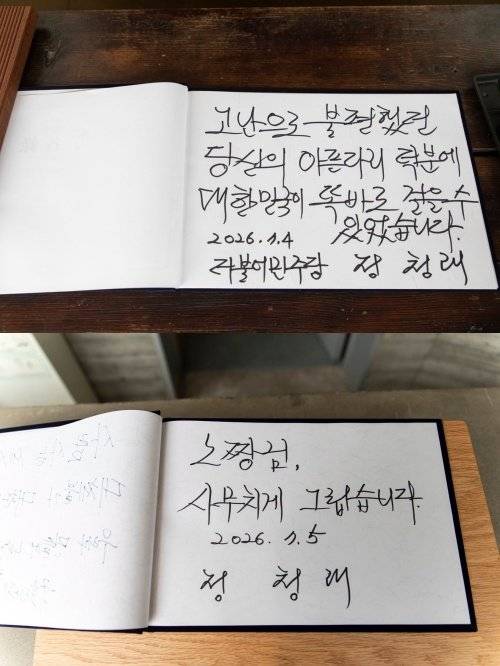 고난으로 불편했던
당신의 아픈다리 덕분에
대한민국이 똑바로 걸을 수
있었습니다.
2026. 1. 4
더불어민주당 정 청 래
노짱님,
사무치게 그립습니다.
2026. 1. 5
정 청 래